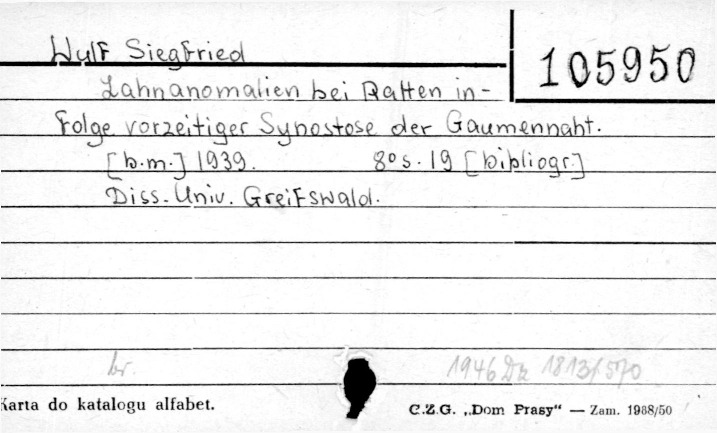 Wulf Siegfried
105950
Zahnanomalien bei Ratten in-
folge vorzeitiger Synostose der Gaumennaht.
[b.m.] 1939. 8° s. 19 [bibliogr.]
Diss. Univ. Greifswald.
br. 1946 Dz 1813/570
Karta do katalogu alfabet. C.Z.G. „Dom Prasy" — Zam. 1988/50